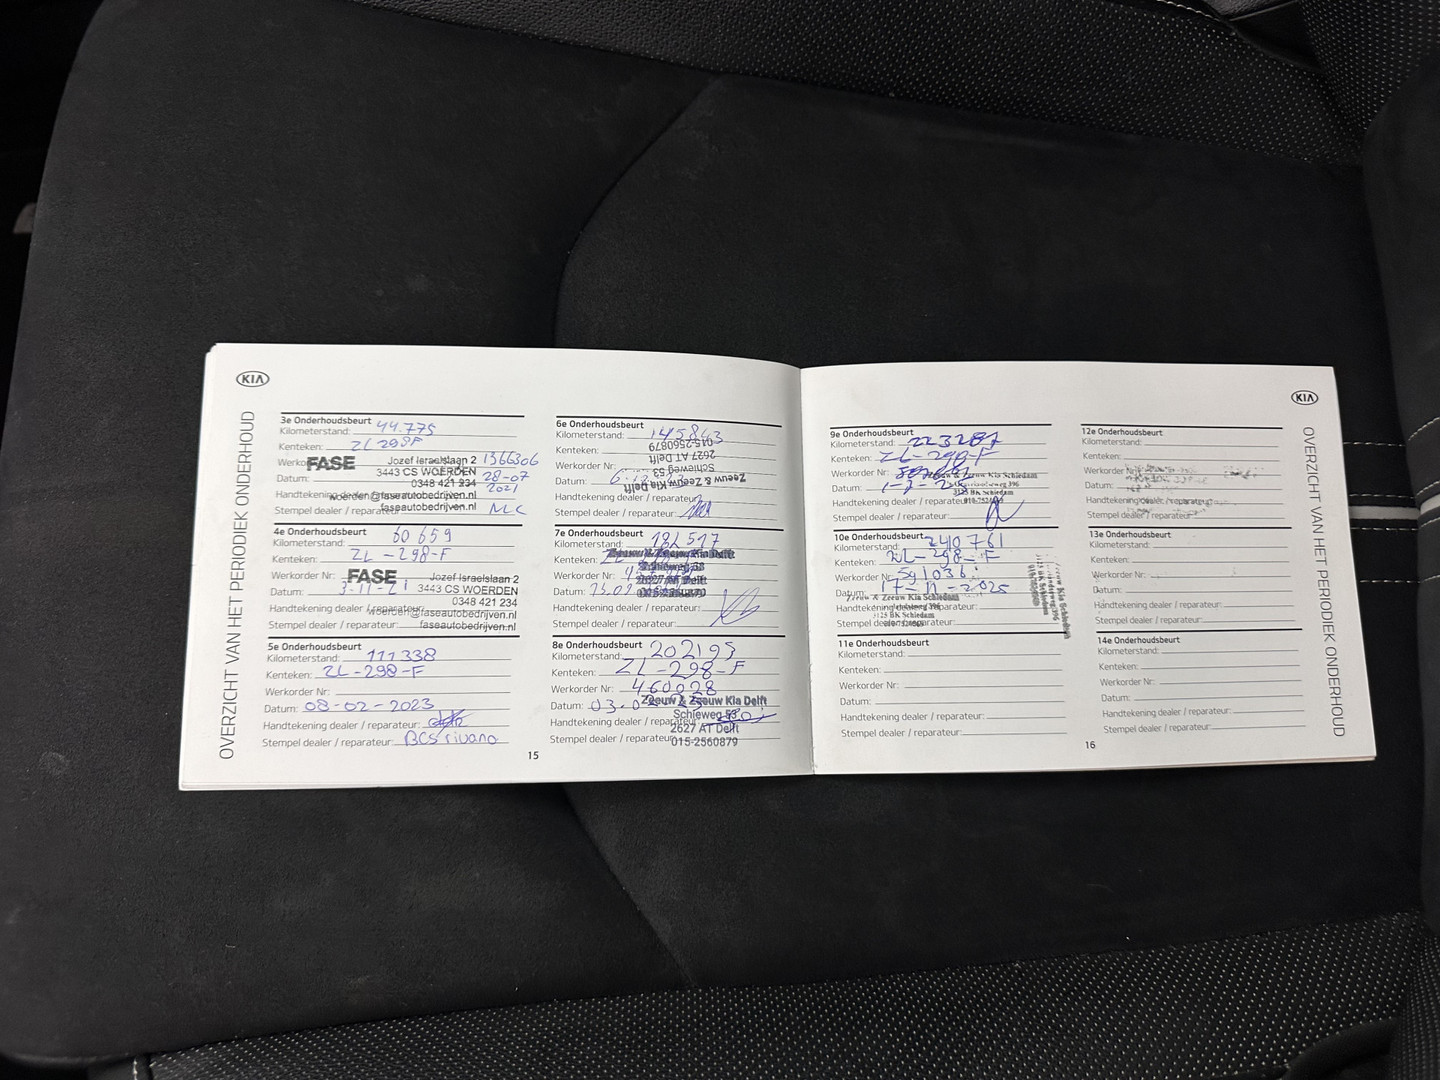 KIA
OVERZICHT VAN HET PERIODIEK ONDERHOUD
3e Onderhoudsbeurt
Kilometerstand: 44.775
Kenteken: ZL 298F
FASE Jozef Israelslaan 2 1366306
3443 CS WOERDEN
Datum: 28-07
0348 421 234 2021
Handtekening dealer / reparateur:
woerden@faseautobedrijven.nl
Stempel dealer / reparateur:
faseautobedrijven.nl
4e Onderhoudsbeurt
Kilometerstand: 60 659
Kenteken: ZL-298-F
Werkorder Nr:
FASE Jozef Israelslaan 2
Datum: 3-11-21
3443 CS WOERDEN
0348 421 234
Handtekening dealer / reparateur:
woerden@faseautobedrijven.nl
Stempel dealer / reparateur:
faseautobedrijven.nl
5e Onderhoudsbeurt
Kilometerstand: 111 338
Kenteken: ZL-298-F
Werkorder Nr:
Datum: 08-02-2023
Handtekening dealer / reparateur:
Stempel dealer / reparateur:
6e Onderhoudsbeurt
Kilometerstand: 145843
Kenteken:
Werkorder Nr:
Datum:
Handtekening dealer / reparateur:
Stempel dealer / reparateur:
Zeeuw & Zeeuw Kia Delft
Schieweg 53
2627 AT Delft
015-2560879
7e Onderhoudsbeurt
Kilometerstand: 182517
Kenteken:
Werkorder Nr:
Datum:
Zeeuw & Zeeuw Kia Delft
Schieweg 53
2627 AT Delft
015-2560879
Handtekening dealer / reparateur:
Stempel dealer / reparateur:
8e Onderhoudsbeurt
Kilometerstand: 202193
Kenteken: ZL-298-F
Werkorder Nr: 460028
Datum:
Zeeuw & Zeeuw Kia Delft
Handtekening dealer / reparateur:
Schieweg 53
2627 AT Delft
Stempel dealer / reparateur:
015-2560879
15
KIA
OVERZICHT VAN HET PERIODIEK ONDERHOUD
9e Onderhoudsbeurt
Kilometerstand: 223287
Kenteken: ZL-298-F
Werkorder Nr:
Zeeuw Kia Schiedam
Datum:
3125 BK Schiedam
Handtekening dealer / reparateur:
Stempel dealer / reparateur:
10e Onderhoudsbeurt
Kilometerstand: 240761
Kenteken: ZL-298-F
Werkorder Nr: 591036
Datum: 17-11-2025
Zeeuw & Zeeuw Kia Schiedam
Handtekening dealer / reparateur:
3125 BK Schiedam
Stempel dealer / reparateur:
11e Onderhoudsbeurt
Kilometerstand:
Kenteken:
Werkorder Nr:
Datum:
Handtekening dealer / reparateur:
Stempel dealer / reparateur:
12e Onderhoudsbeurt
Kilometerstand:
Kenteken:
Werkorder Nr:
Datum:
Handtekening dealer / reparateur:
Stempel dealer / reparateur:
13e Onderhoudsbeurt
Kilometerstand:
Kenteken:
Werkorder Nr:
Datum:
Handtekening dealer / reparateur:
Stempel dealer / reparateur:
14e Onderhoudsbeurt
Kilometerstand:
Kenteken:
Werkorder Nr:
Datum:
Handtekening dealer / reparateur:
Stempel dealer / reparateur:
16